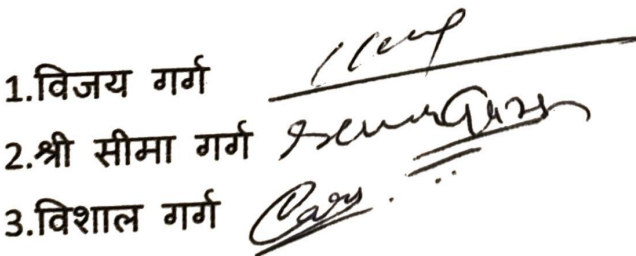 1.विजय गर्ग
2.श्री सीमा गर्ग
3.विशाल गर्ग